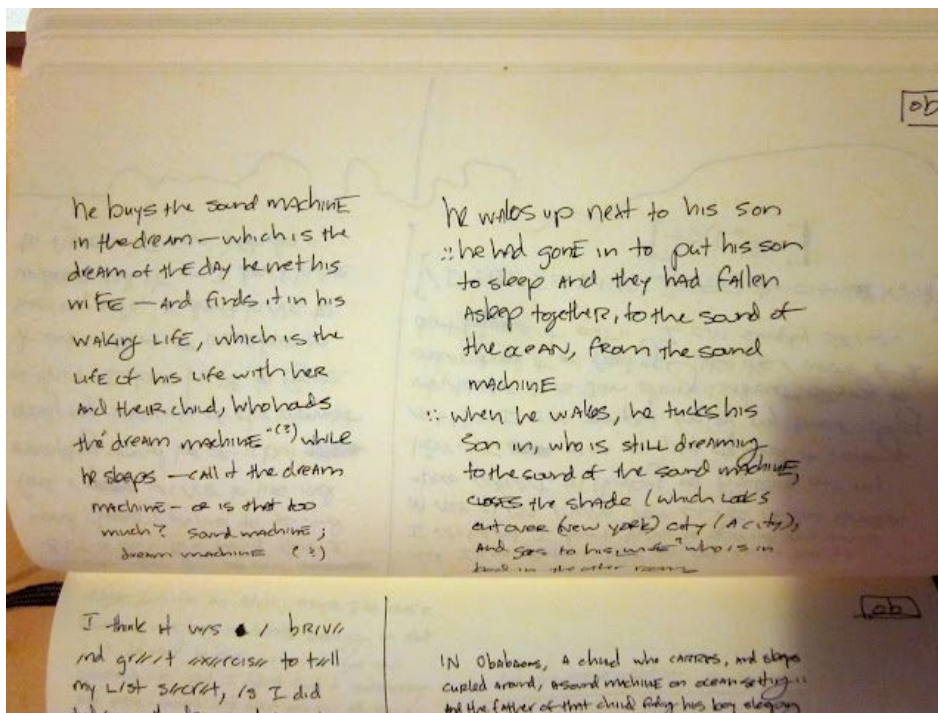 ob
he buys the sound machine
in the dream — which is the
dream of the day he met his
wife — and finds it in his
waking life, which is the
life of his life with her
and their child, who hads
the "dream machine" (?) while
he sleeps — call it the dream
machine — or is that too
much? Sound machine;
dream machine (?)
he wakes up next to his son
∴ he had gone in to put his son
to sleep and they had fallen
asleep together, to the sound of
the ocean, from the sound
machine
∴ when he wakes, he tucks his
son in, who is still dreaming
to the sound of the sound machine,
closes the shade (which looks
out over (New York) city (a city),
and goes to his wife who is in
bed in the other room
ob
I think it was a brave
and great exercise to tell
my last secret, as I did
In Obabaons, a child who carries, and sleeps
curled around, a sound machine on ocean setting
and the father of that child his boy sleeping